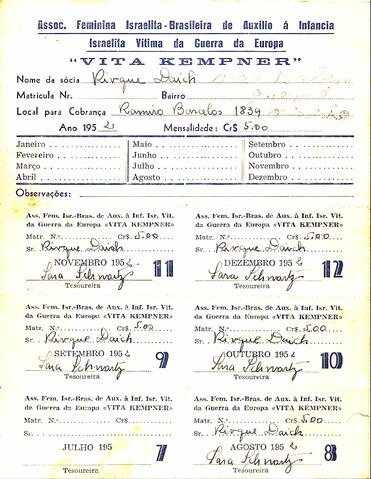 Assoc. Feminina Israelita-Brasileira de Auxilio á Infancia
Israelita Vitima da Guerra da Europa
"VITA KEMPNER"
Nome da sócia Rivque Daich
Matrícula Nr. Bairro
Local para Cobrança Ramiro Barcelos 1839
Ano 1952 Mensalidade: Cr$ 5.00
Janeiro Maio Setembro
Fevereiro Junho Outubro
Março Julho Novembro
Abril Agosto Dezembro
Observações:
Ass. Fem. Isr.-Bras. de Aux. à Inf. Isr. Vit.
da Guerra da Europa «VITA KEMPNER»
Matr. N.º Cr$. 5.00
Sr. Rivque Daich
NOVEMBRO 1952 11
Sara Schwartz
Tesoureira
Ass. Fem. Isr.-Bras. de Aux. à Inf. Isr. Vit.
da Guerra da Europa «VITA KEMPNER»
Matr. N.º Cr$. 5.00
Sr. Rivque Daich
DEZEMBRO 1952 12
Sara Schwartz
Tesoureira
Ass. Fem. Isr.-Bras. de Aux. à Inf. Isr. Vit.
da Guerra da Europa «VITA KEMPNER»
Matr. N.º Cr$. 5.00
Sr. Rivque Daich
SETEMBRO 1952 9
Sara Schwartz
Tesoureira
Ass. Fem. Isr.-Bras. de Aux. à Inf. Isr. Vit.
da Guerra da Europa «VITA KEMPNER»
Matr. N.º Cr$. 5.00
Sr. Rivque Daich
OUTUBRO 1952 10
Sara Schwartz
Tesoureira
Ass. Fem. Isr.-Bras. de Aux. à Inf. Isr. Vit.
da Guerra da Europa «VITA KEMPNER»
Matr. N.º Cr$.
Sr.
JULHO 195 7
Tesoureira
Ass. Fem. Isr.-Bras. de Aux. à Inf. Isr. Vit.
da Guerra da Europa «VITA KEMPNER»
Matr. N.º Cr$. 5.00
Sr. Rivque Daich
AGOSTO 1952 8
Sara Schwartz
Tesoureira